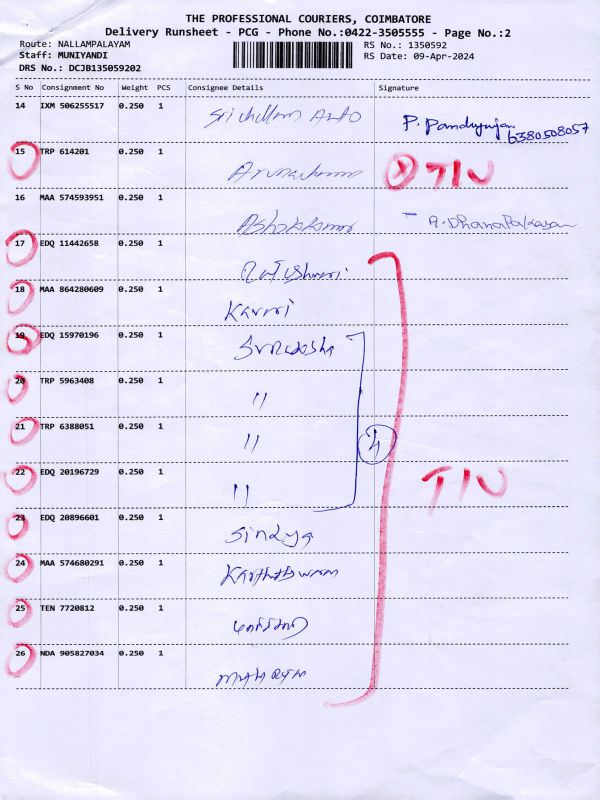 THE PROFESSIONAL COURIERS, COIMBATORE
Delivery Runsheet - PCG - Phone No.:0422-3505555 - Page No.:2
Route: NALLAMPALAYAM RS No.: 1350592
Staff: MUNIYANDI RS Date: 09-Apr-2024
DRS No.: DCJB135059202
S No Consignment No Weight PCS Consignee Details Signature
14 IXM 506255517 0.250 1 Auto
6380508057
15 TRP 614201 0.250 1
16 MAA 574593951 0.250 1
17 EDQ 11442658 0.250 1
18 MAA 864280609 0.250 1
19 EDQ 15970196 0.250 1
20 TRP 5963408 0.250 1 "
21 TRP 6388051 0.250 1 "
4
22 EDQ 20196729 0.250 1 "
23 EDQ 20896601 0.250 1 Sindya
24 MAA 574680291 0.250 1
25 TEN 7720812 0.250 1
26 NDA 905827034 0.250 1